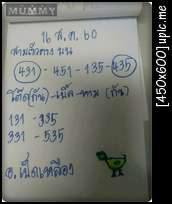 MUMMY
16 ส.ค. 60
สามตัวตรง บน
431 - 451 - 135 - 435
โต๊ด (กัน) - เน็ต - หาม (กัน)
131 - 935
331 - 535
อ. เป็ดเหลือง
[450x600] upic.me